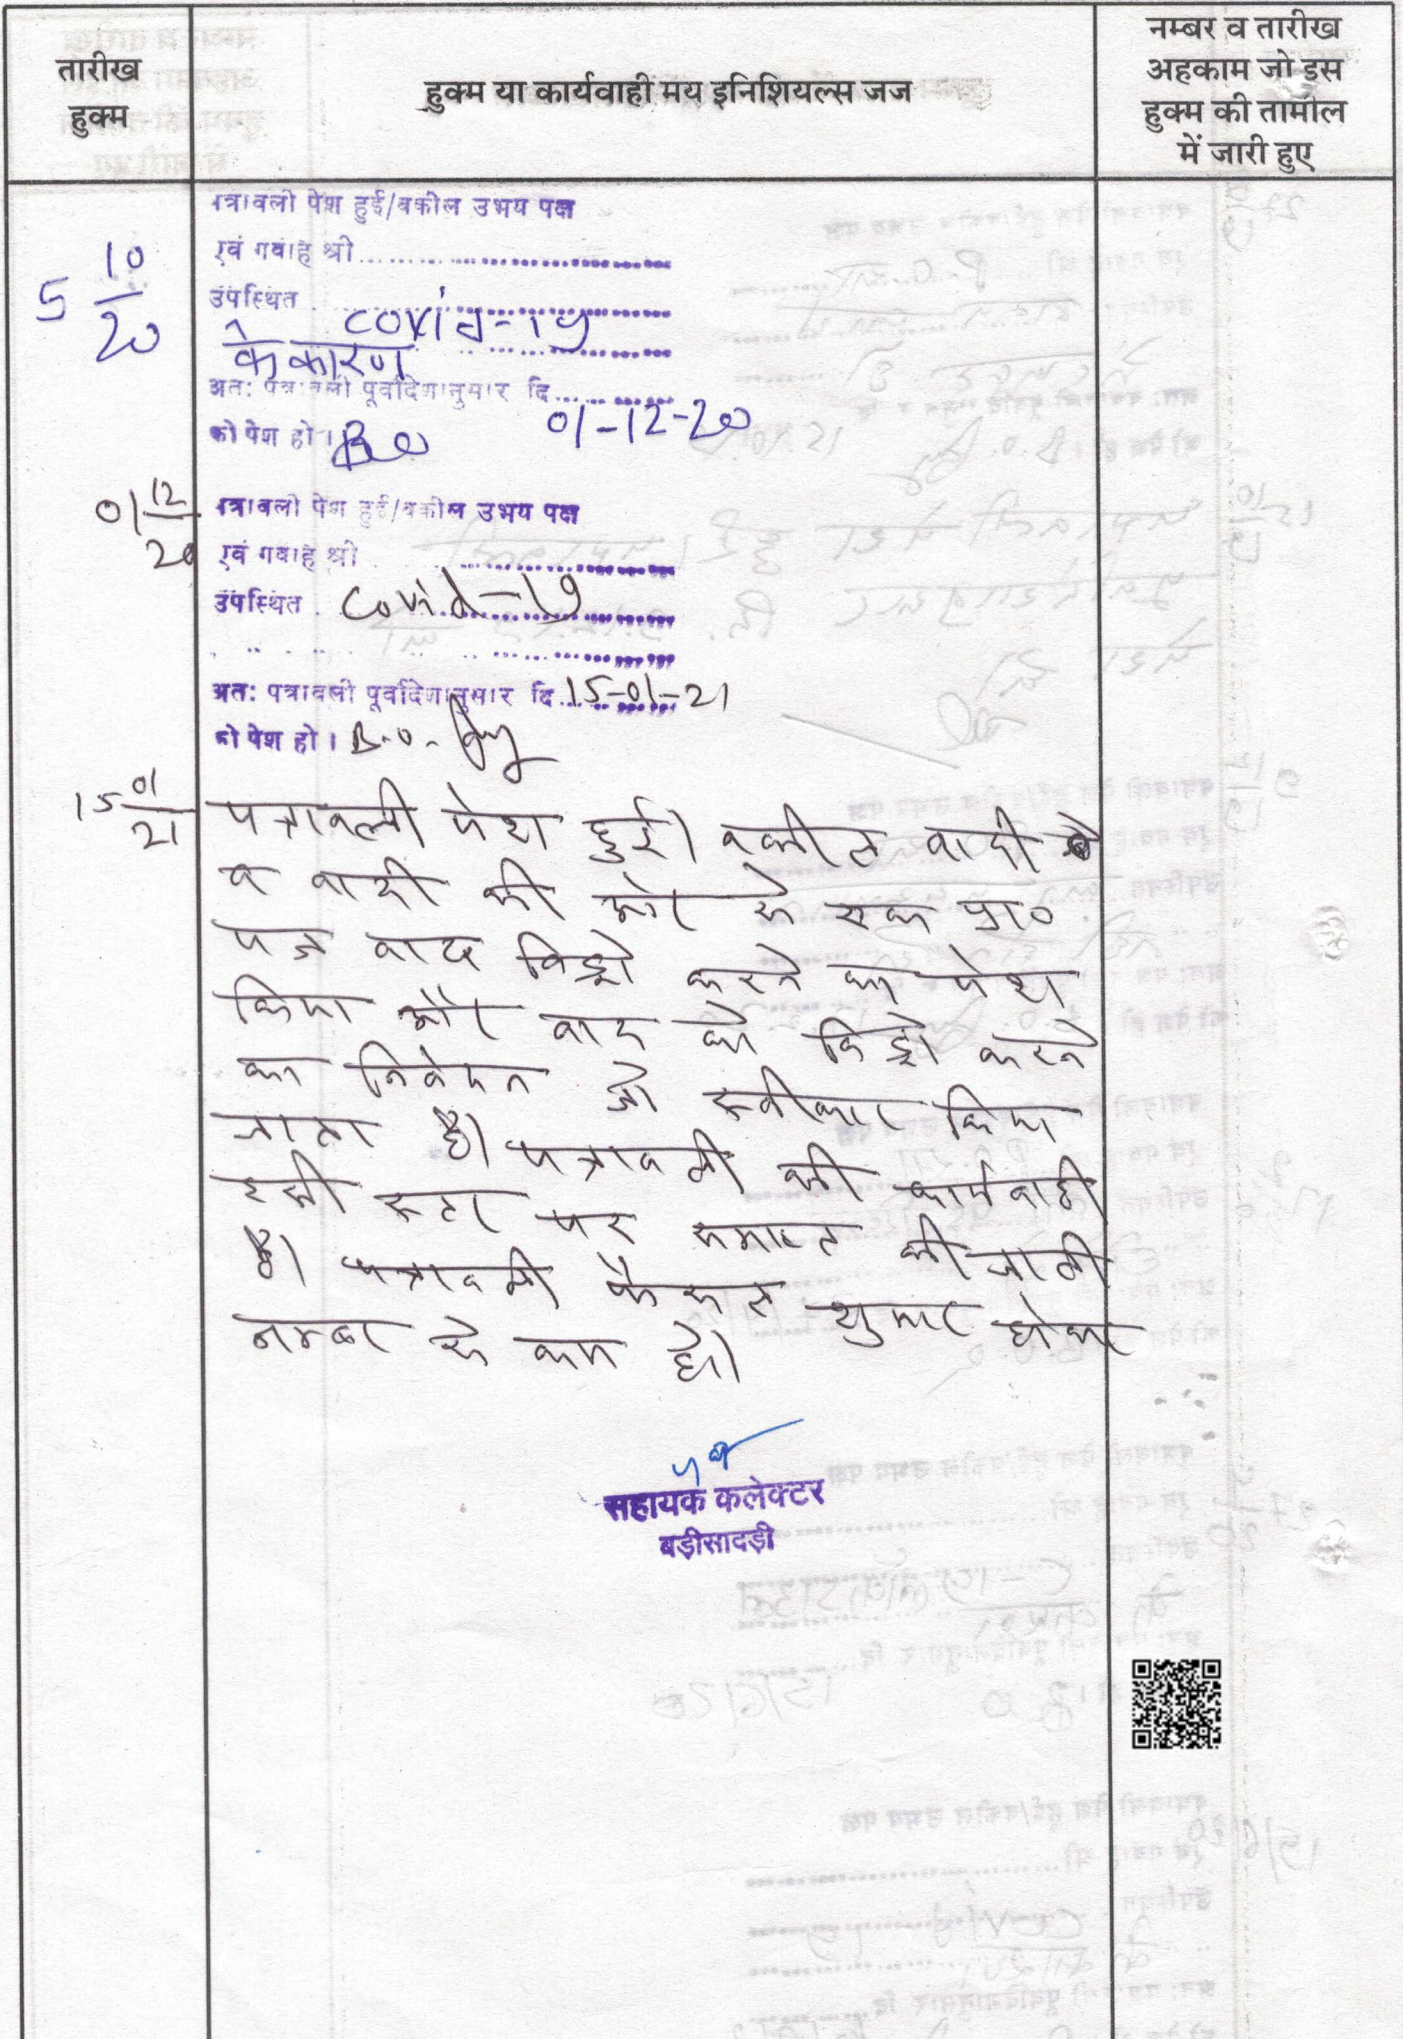 तारीख
हुक्म
हुक्म या कार्यवाही मय इनिशियल्स जज
नम्बर व तारीख
अहकाम जो इस
हुक्म की तामील
में जारी हुए
5 10/20
पत्रावली पेश हुई/वकील उभय पक्ष
एवं गवाह श्री
उपस्थित
covid-19
के कारण
अत: पत्रावली पूर्वादेशानुसार दि
01-12-20
को पेश हो।
01 12/20
पत्रावली पेश हुई/वकील उभय पक्ष
एवं गवाह श्री
उपस्थित covid-19
अत: पत्रावली पूर्वादेशानुसार दि 15-01-21
को पेश हो।
15 01/21
पत्रावली पेश हुई। वकील वादी
व वादी की ओर से एक प्रा०
पत्र वाद विड्रो करने का पेश
किया और वाद को विड्रो करने
का निवेदन जो स्वीकार किया
जाता है। पत्रावली की कार्यवाही
इसी स्टेज पर समाप्त की जाती
है। पत्रावली फैसल शुमार होकर
नम्बर से कम हो।
सहायक कलेक्टर
बड़ीसादड़ी